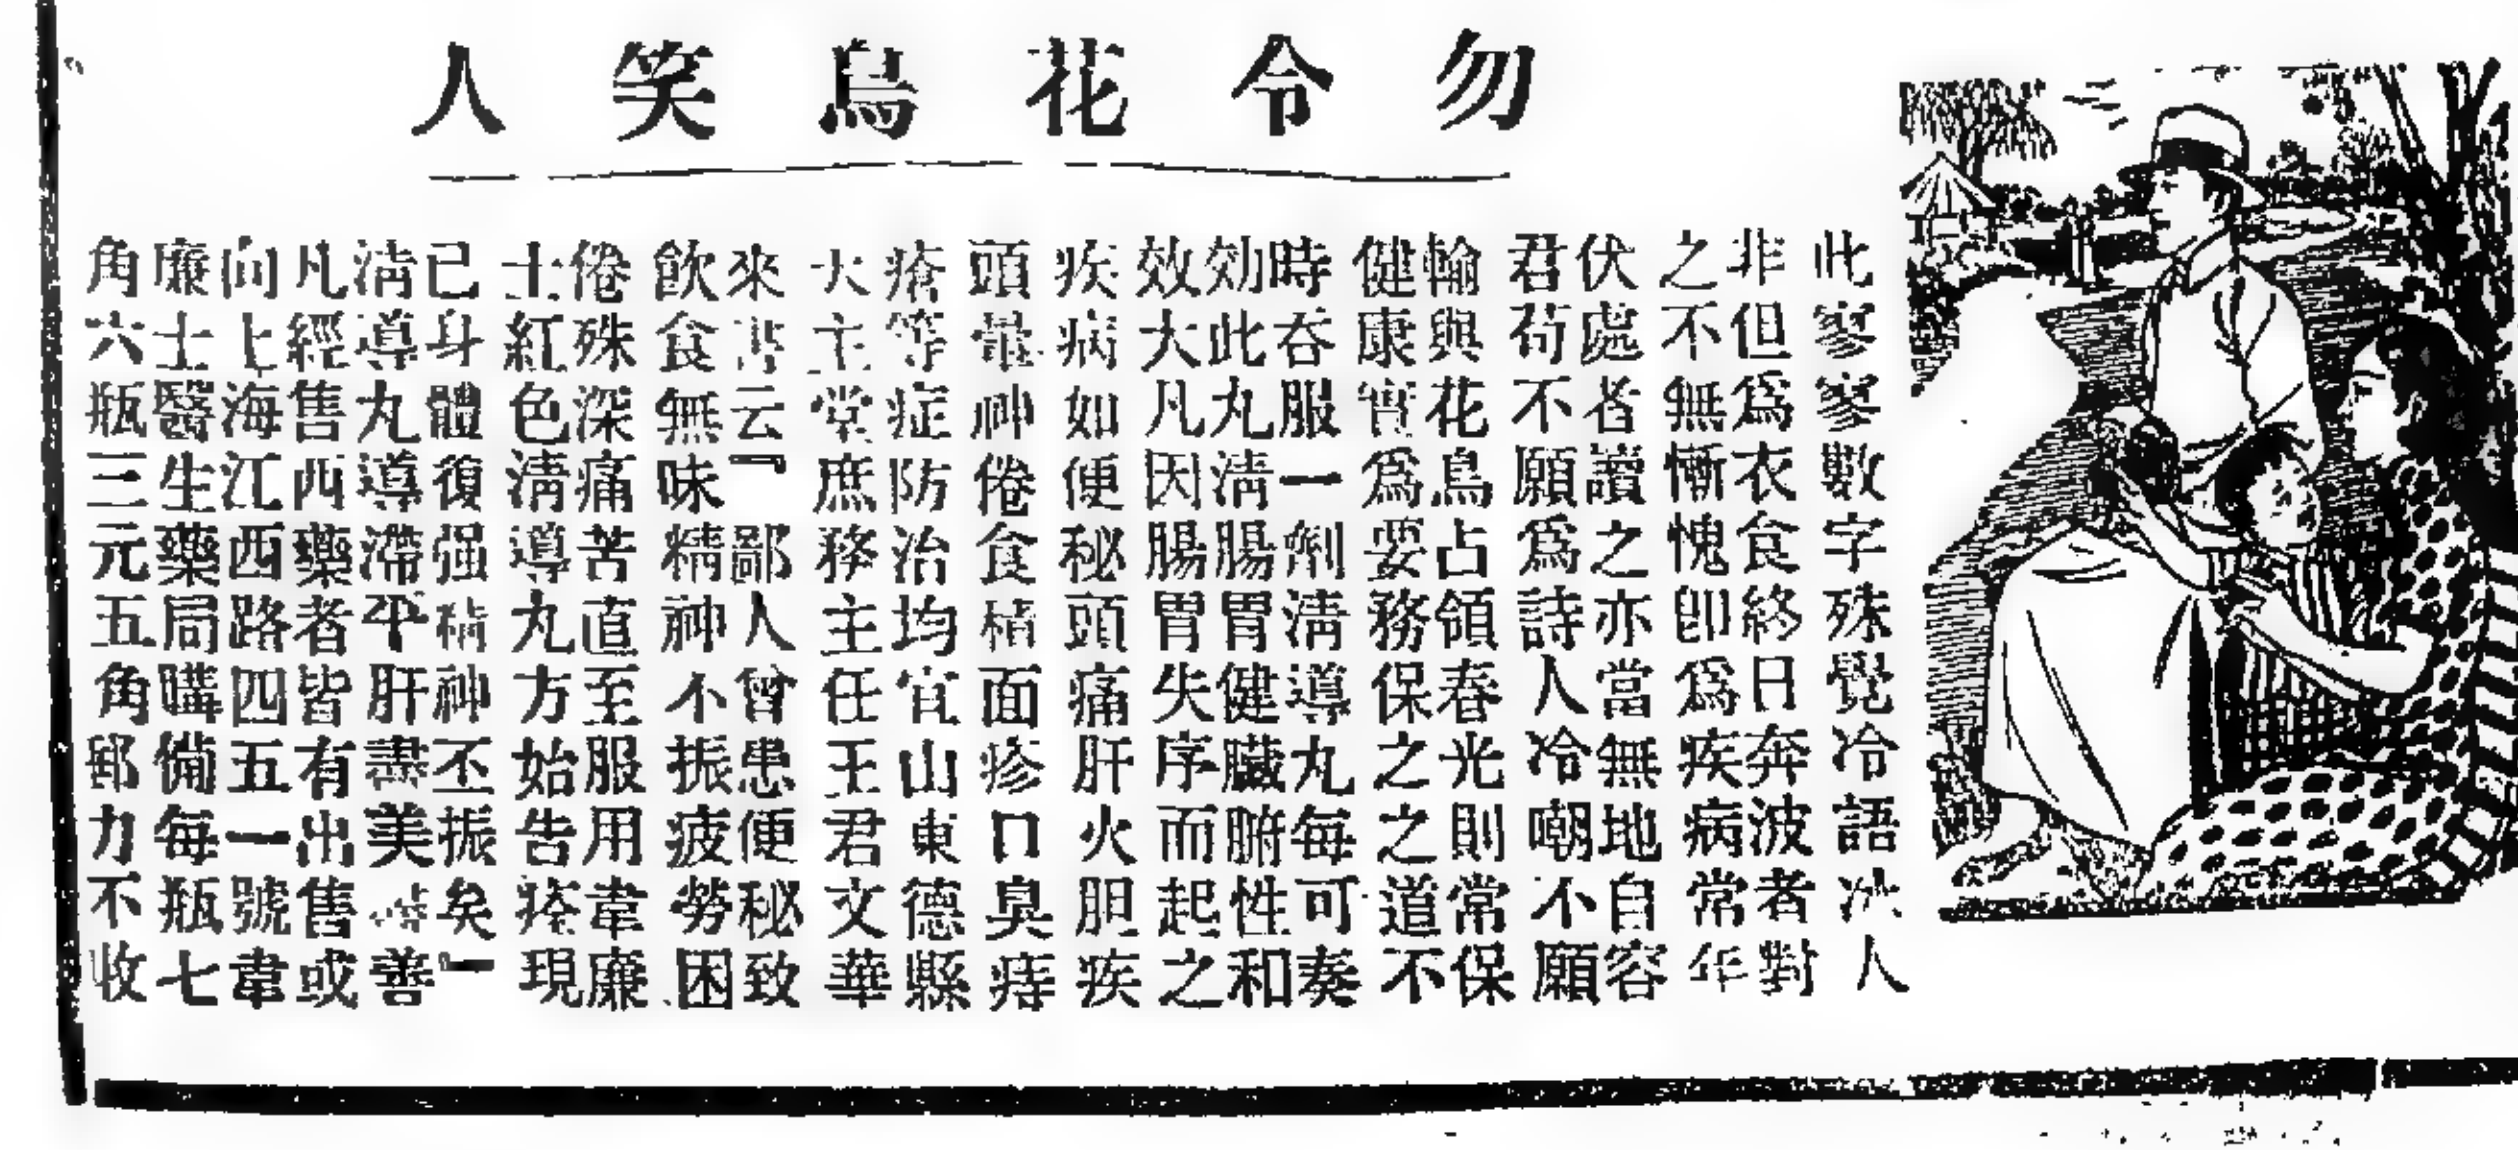 勿令花鳥笑人
此寥寥數字殊覺冷語冰人
非但爲衣食終日奔波者對
之不無慚愧卽爲疾病常年
伏處者讀之亦當無地自容
君苟不願爲詩人冷嘲不願
輪與花鳥占領春光則常保
健康實爲要務保之之道不
時吞服一劑淸導丸每可奏
効此丸淸腸胃健臟腑性和
效大凡因腸胃失序而起之
疾病如便秘頭痛肝火胆疾
頭暈神倦食積面疹口臭痔
瘡等症防治均宜山東德縣
大主堂庶務主任王君文華
來書云『鄙人曾患便秘致
飲食無味精神不振疲勞困
倦殊深痛苦直至服用韋廉
士紅色淸導丸方始告痊現
已身體復强精神丕振矣』
淸導丸導滯平肝盡美 善
凡經售西藥者皆有出售或
向上海江西路四五一號韋
廉士醫生藥局購備每瓶七
角六瓶三元五角郵力不收